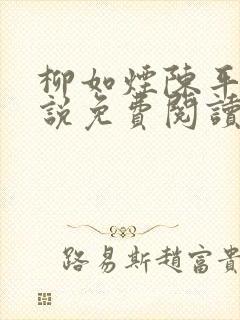 柳如煙陳平
說免費閱讀
路易斯趙富貴